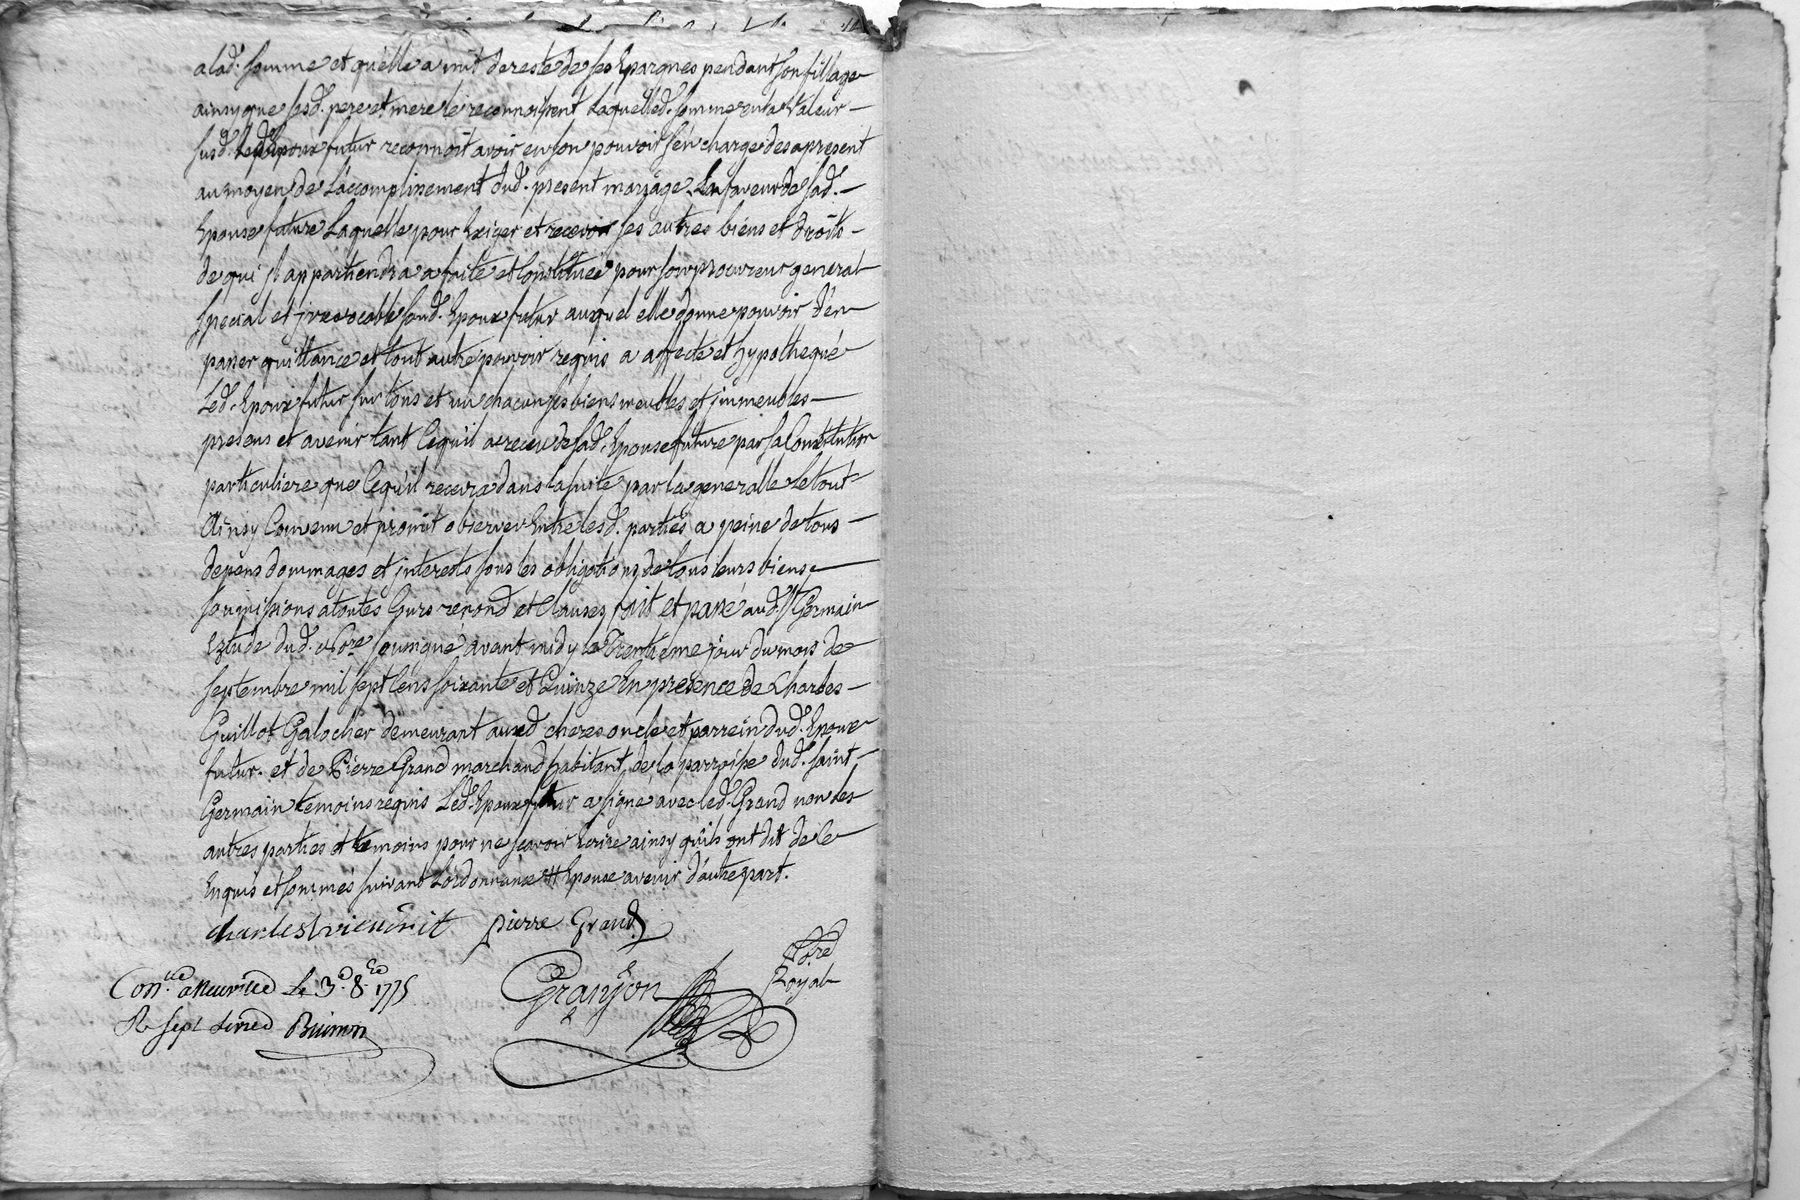 alad. somme et quelle a mit de reste de ses Epargnes pendant son fillage
ainsy que sesd. pere et mere le reconnoissent laquelled. somme en la valeur
susd. led. Epoux futur reconnoit avoir en son pouvoir s'en charge des apresent
au moyen de L'accomplissement dud. present mariage En faveur de sad.
Epouse future Laquelle pour Exiger et recevoir ses autres biens et droits
de qui jl appartiendra a faite et Constitueé pour son procureur general
special et jrrevocable sond. Epoux futur auquel elle donne pouvoir d'en
passer quittance et tout autre pouvoir requis a affecté et hypothequé
Led. Epoux futur sur tous et un chacun ses biens meubles et jmmeubles
presens et avenir tant Cequil a receu de sad. Epouse future par sa Constitution
particuliere que Cequil recevra dans la suite par la generalle Le tout
Ainsy Convenu et promit observer Entre lesd. parties a peine de tous
depens dommages et jnterests sous les obligations de tous leurs biens
soumissions a toutes Cours renond. et Clauses fait et passé aud. St Germain
Estude dud. Nore. soussigné avant midy le Trentieme jour du mois de
septembre mil sept Cens soixante et Quinze En presence de Charles
Guillot Galocher demeurant aud. oncle et parrein dud. Epoux
futur. et de Pierre Grand marchand habitant de la parroisse dud. saint
Germain temoins requis Led. Epoux futur a signé avec led. Grand non les
autres parties et temoins pour ne scavoir Ecrire ainsy quils ont dit de ce
Enquis et sommés suivant Lordonnance # Epouse avenir d'autre part.
Charles pierre Grand
Granjon Nore. Royal
Con.lle a Le 3.e 8.bre 1775
R. sept